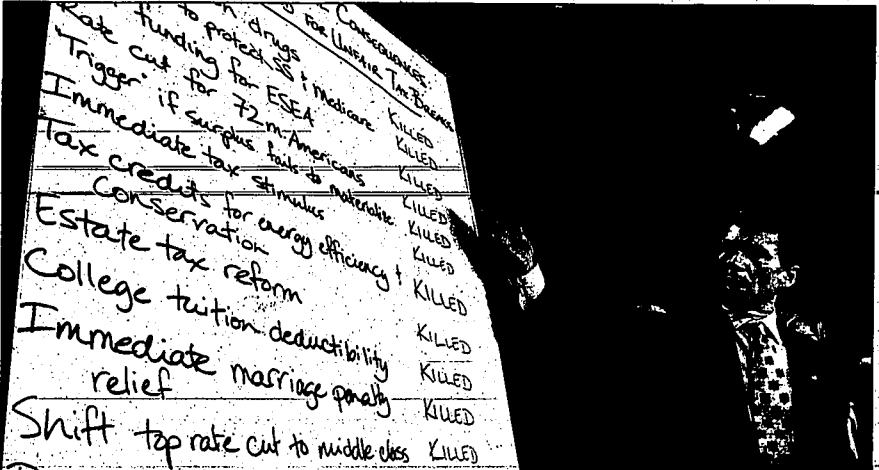 CONSEQUENCES:
FOR UNFAIR TAX BREAKS
drugs KILLED
to protect SS & Medicare KILLED
funding for ESEA KILLED
Rate cut for 72 m. Americans KILLED
"Trigger" if surplus fails to materialize KILLED
Immediate tax stimulus KILLED
Tax credits for energy efficiency &
Conservation KILLED
Estate tax reform KILLED
College tuition deductibility KILLED
Immediate marriage penalty
relief KILLED
Shift top rate cut to middle class KILLED